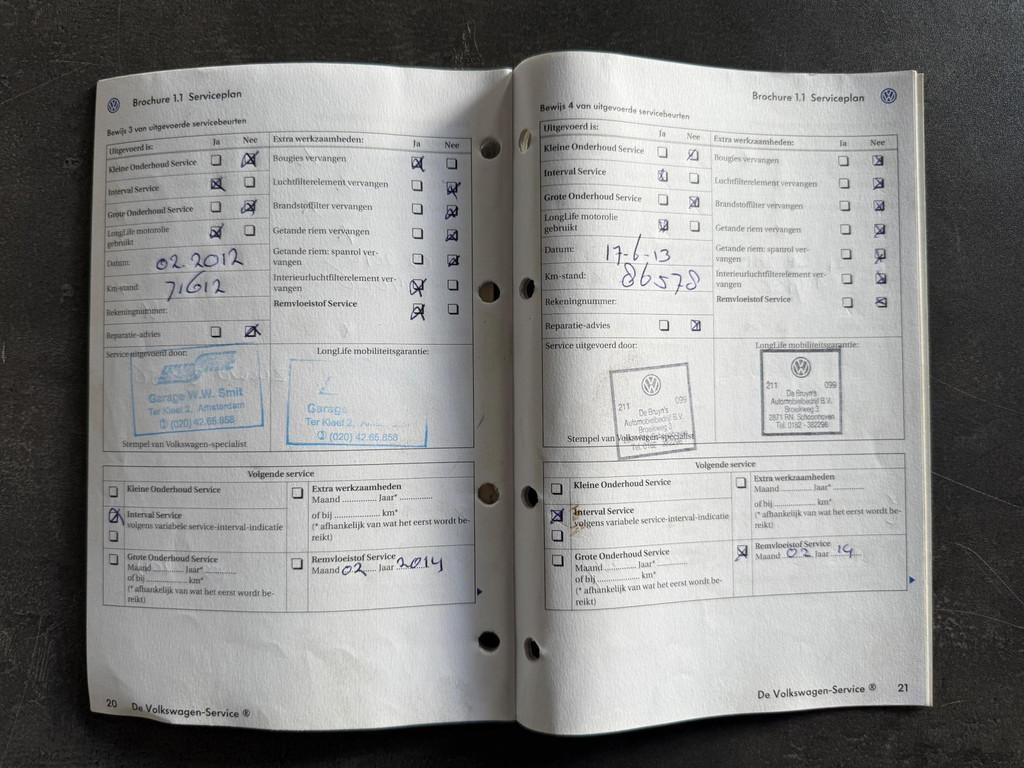 Brochure 1.1 Serviceplan
Bewijs 3 van uitgevoerde servicebeurten
Uitgevoerd is: Ja Nee
Kleine Onderhoud Service
Interval Service
Grote Onderhoud Service
LongLife motorolie
gebruikt
Datum: 02.2012
Km-stand: 71612
Rekeningnummer:
Reparatie-advies
Extra werkzaamheden: Ja Nee
Bougies vervangen
Luchtfilterelement vervangen
Brandstoffilter vervangen
Getande riem vervangen
Getande riem: spanrol ver-
vangen
Interieurluchtfilterelement ver-
vangen
Remvloeistof Service
Service uitgevoerd door:
Garage W.W. Smit
Ter Kleef 2, Amsterdam
(020) 42.65.858
Stempel van Volkswagen-specialist
LongLife mobiliteitsgarantie:
Garage
Ter Kleef 2,
(020) 42.65.858
Volgende service
Kleine Onderhoud Service
Interval Service
volgens variabele service-interval-indicatie
Grote Onderhoud Service
Maand .......... Jaar* ..........
of bij .......... km*
(* afhankelijk van wat het eerst wordt be-
reikt)
Extra werkzaamheden
Maand .......... Jaar* ..........
of bij .......... km*
(* afhankelijk van wat het eerst wordt be-
reikt)
Remvloeistof Service
Maand 02 Jaar 2014
20 De Volkswagen-Service ®
Brochure 1.1 Serviceplan
Bewijs 4 van uitgevoerde servicebeurten
Uitgevoerd is: Ja Nee
Kleine Onderhoud Service
Interval Service
Grote Onderhoud Service
LongLife motorolie
gebruikt
Datum: 17-6-13
Km-stand: 86578
Rekeningnummer:
Reparatie-advies
Extra werkzaamheden: Ja Nee
Bougies vervangen
Luchtfilterelement vervangen
Brandstoffilter vervangen
Getande riem vervangen
Getande riem: spanrol ver-
vangen
Interieurluchtfilterelement ver-
vangen
Remvloeistof Service
Service uitgevoerd door:
211 099
De Bruyn's
Automobielbedrijf B.V.
Broeikweg 3
Tel. 0182 - 382296
Stempel van Volkswagen-specialist
LongLife mobiliteitsgarantie:
211 099
De Bruyn's
Automobielbedrijf B.V.
Broeikweg 3
2871 RN Schoonhoven
Tel. 0182 - 382296
Volgende service
Kleine Onderhoud Service
Interval Service
volgens variabele service-interval-indicatie
Grote Onderhoud Service
Maand .......... Jaar* ..........
of bij .......... km*
(* afhankelijk van wat het eerst wordt be-
reikt)
Extra werkzaamheden
Maand .......... Jaar* ..........
of bij .......... km*
(* afhankelijk van wat het eerst wordt be-
reikt)
Remvloeistof Service
Maand 02 Jaar 14
De Volkswagen-Service ® 21